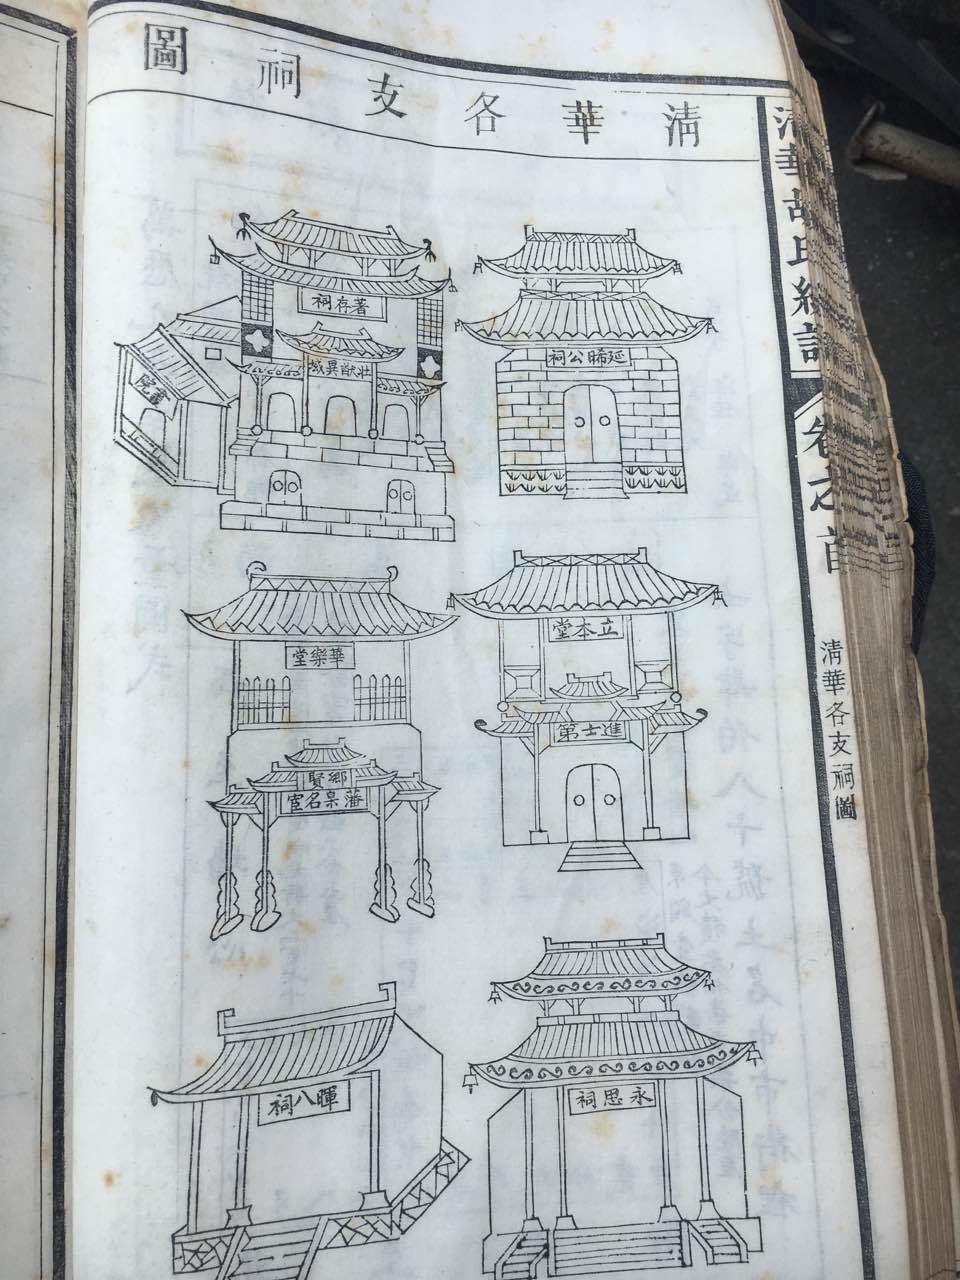 清華各支祠圖
清華胡氏統譜
卷之首
清華各支祠圖
延晞公祠
著存祠
壯猷異域
書院
立本堂
進士第
華樂堂
鄉賢
藩臬名宦
永思祠
暉八祠